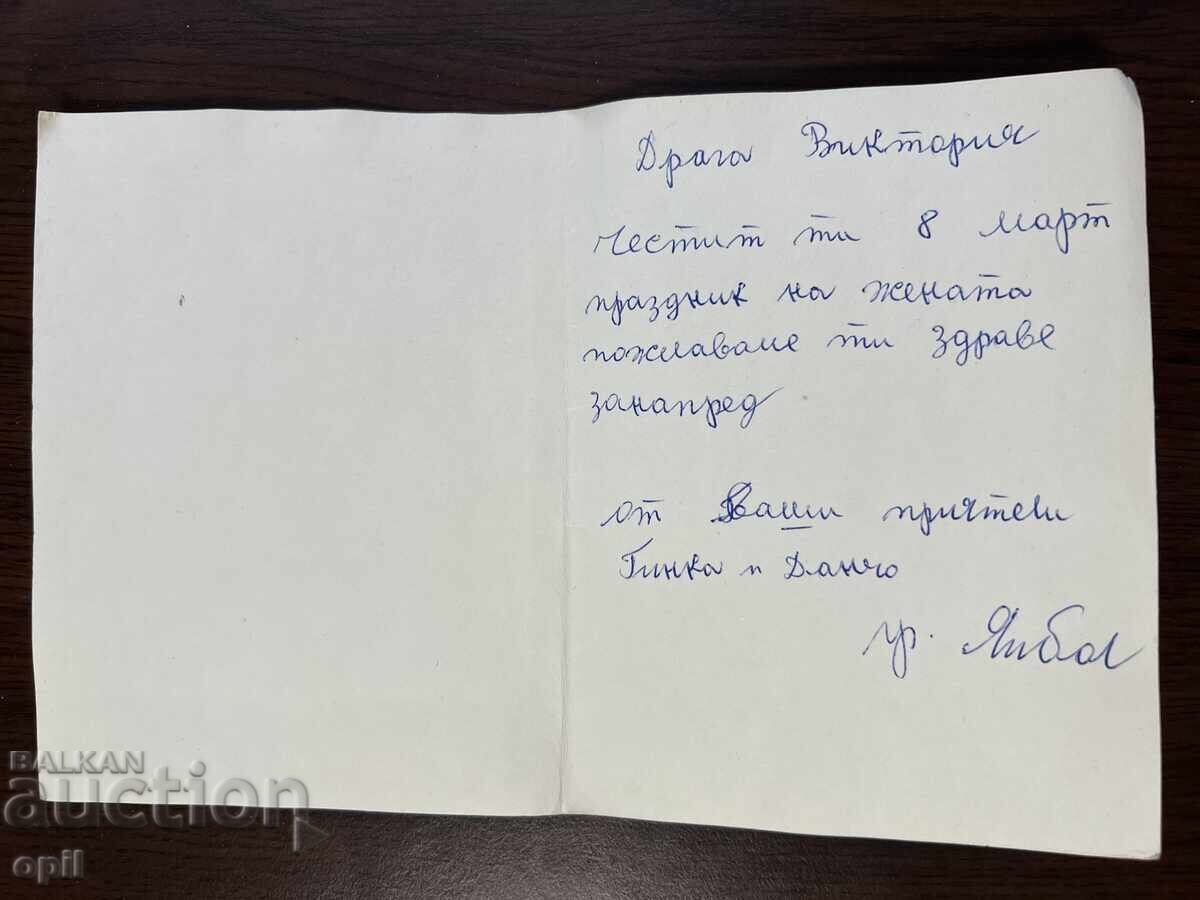 Драга Виктория
Честит ти 8 март
празник на жената
пожелаваме ти здраве
занапред
от Ваши приятели
Гинка и Данчо
гр. Ямбол
BALKAN
auction
opil